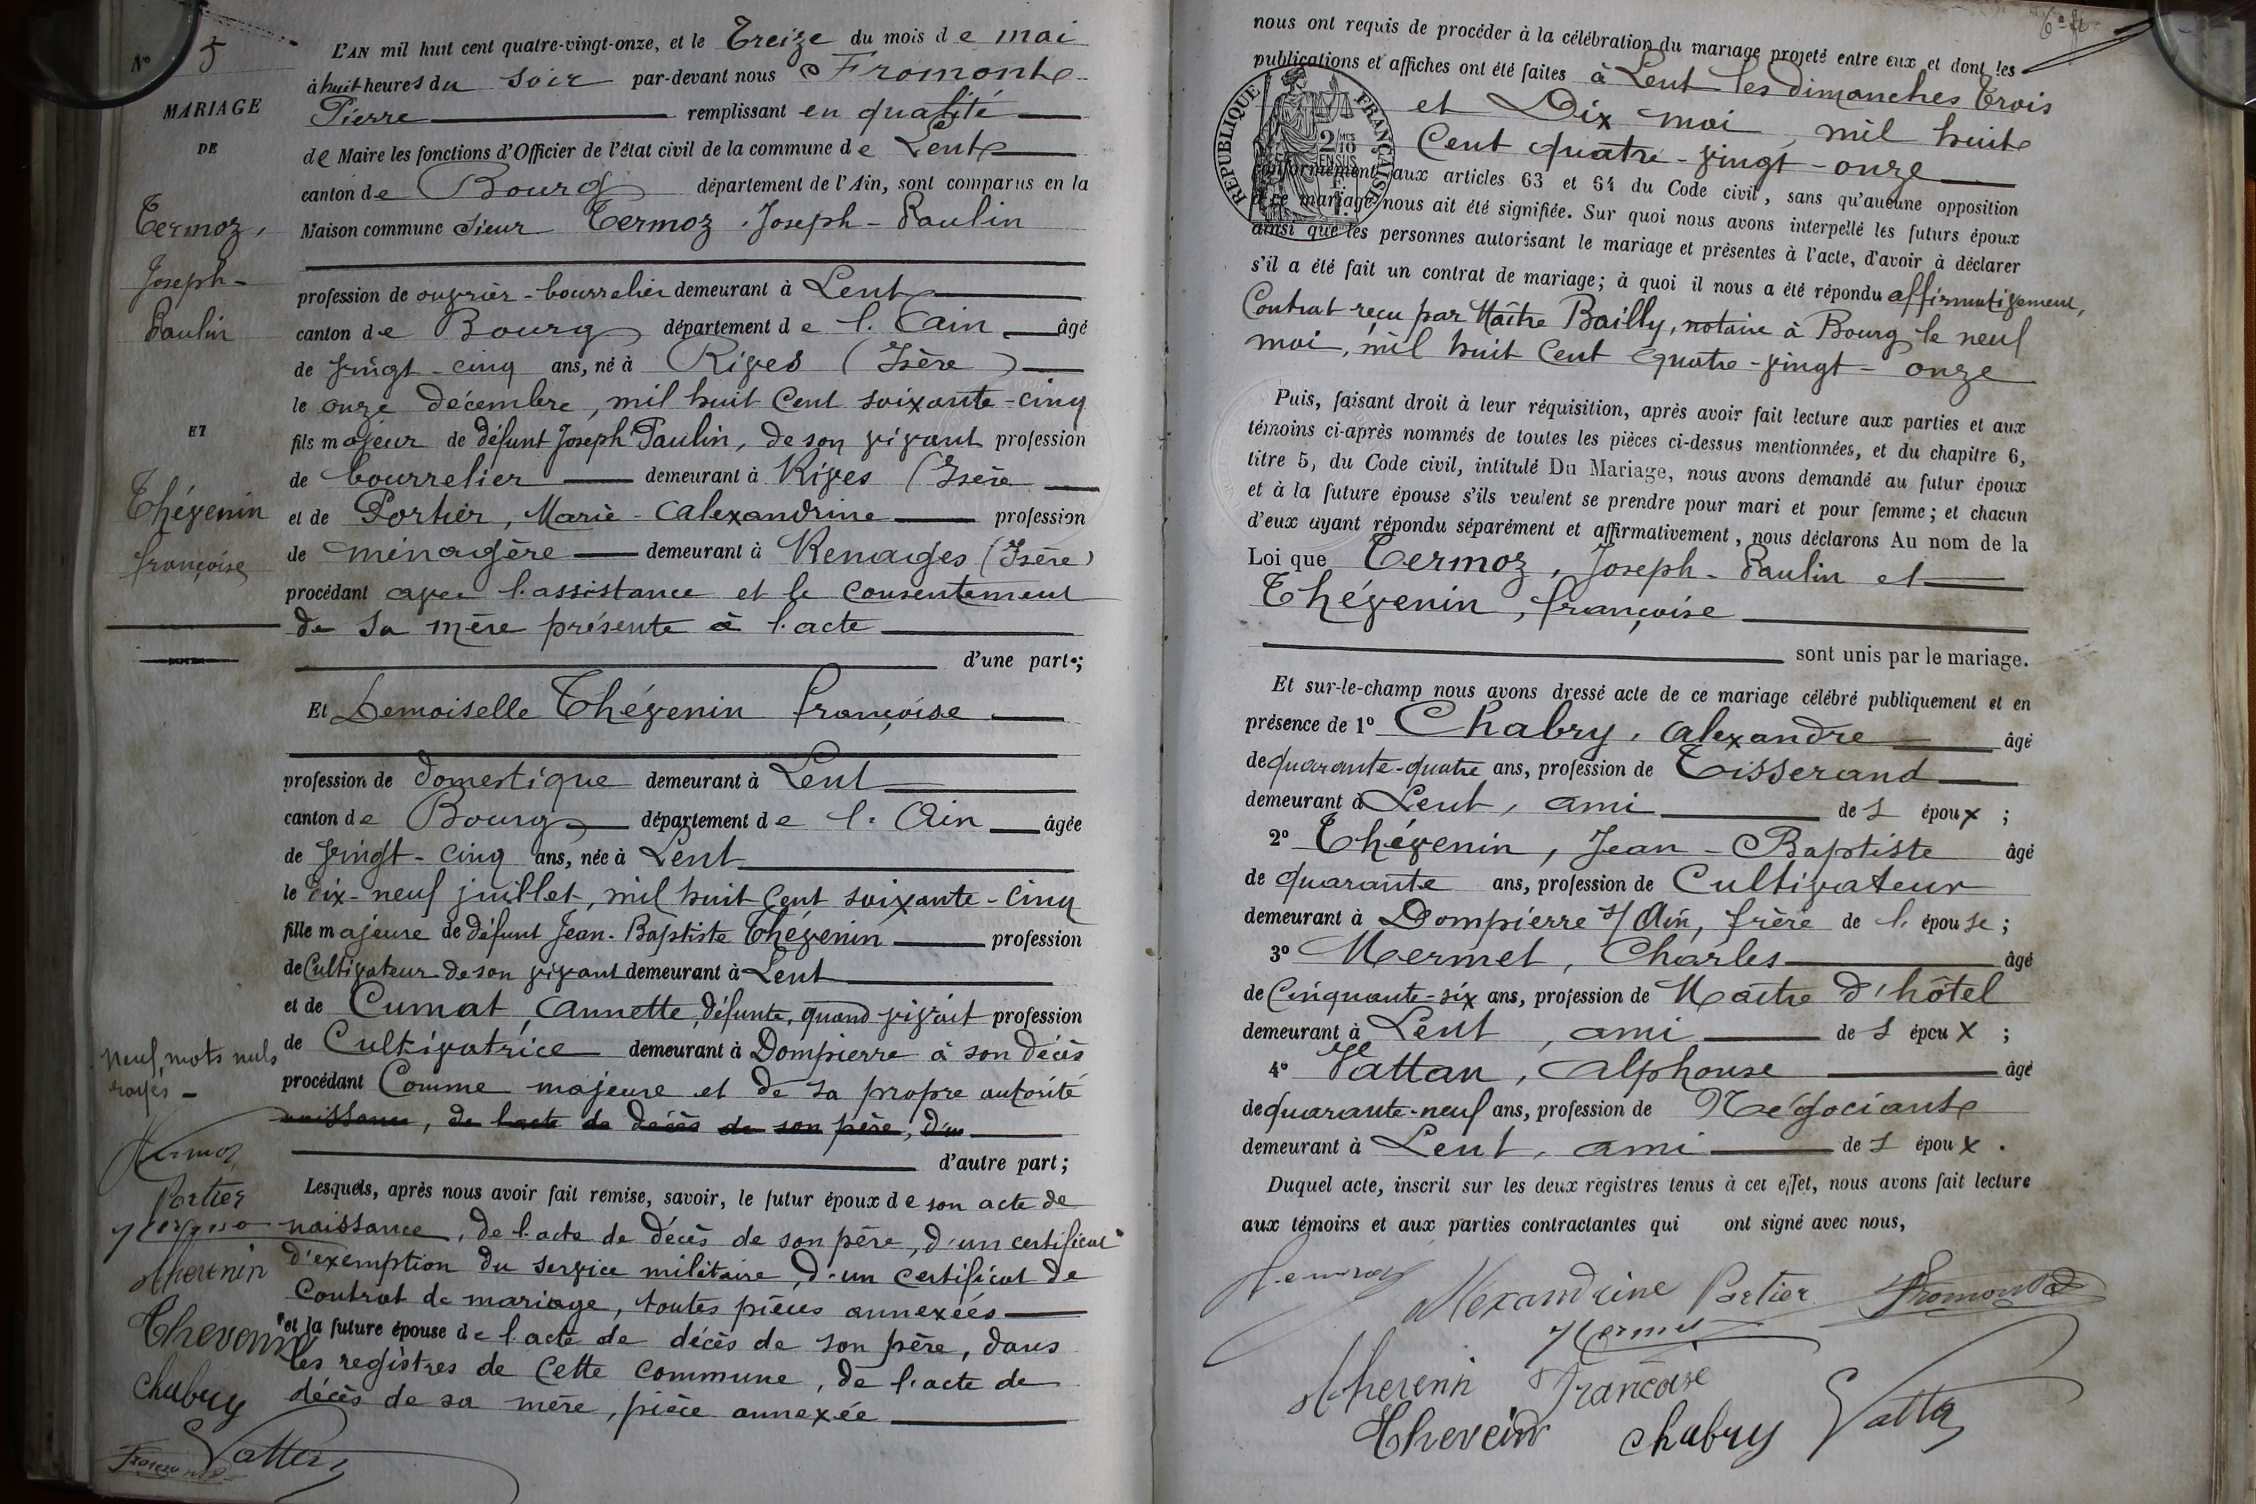 N° 5
MARIAGE
DE
Termoz,
Joseph-
Paulin
ET
Thévenin
françoise
L'AN mil huit cent quatre-vingt-onze, et le Treize du mois de mai
à huit heures du soir par-devant nous Fromont
Pierre remplissant en qualité
de Maire les fonctions d'Officier de l'état civil de la commune de Lent
canton de Bourg département de l'Ain, sont comparus en la
Maison commune Sieur Termoz, Joseph-Paulin
profession de ouvrier-bourrelier demeurant à Lent
canton de Bourg département de l'Ain âgé
de vingt-cinq ans, né à Rives (Isère)
le onze décembre, mil huit cent soixante-cinq
fils majeur de défunt Joseph Paulin, de son vivant profession
de bourrelier demeurant à Rives (Isère
et de Portier, Marie-Alexandrine profession
de ménagère demeurant à Renages (Isère)
procédant avec l'assistance et le consentement
de sa mère présente à l'acte
d'une part;
Et Demoiselle Thévenin françoise
profession de domestique demeurant à Lent
canton de Bourg département de l'Ain âgée
de vingt-cinq ans, née à Lent
le dix-neuf juillet, mil huit cent soixante-cinq
fille majeure de défunt Jean-Baptiste Thévenin profession
de Cultivateur de son vivant demeurant à Lent
et de Cumat, Annette, défunte, quand vivait profession
de Cultivatrice demeurant à Dompierre à son décès
procédant Comme majeure et de sa propre autorité
naissance, de l'acte de décès de son père, d'un
d'autre part;
Neuf mots nuls
rayés -
Termoz
Portier
Mermet
Thevenin
Thevenin
Chabry
Vattan
Fromont
Lesquels, après nous avoir fait remise, savoir, le futur époux de son acte de
naissance, de l'acte de décès de son père, d'un certificat
d'exemption du service militaire, d'un certificat de
Contrat de mariage, toutes pièces annexées
et la future épouse de l'acte de décès de son père, dans
les registres de cette commune, de l'acte de
décès de sa mère, pièce annexée
nous ont requis de procéder à la célébration du mariage projeté entre eux et dont les
publications et affiches ont été faites à Lent les dimanches trois
et Dix mai, mil huit
Cent quatre-vingt-onze
conformément aux articles 63 et 64 du Code civil, sans qu'aucune opposition
à ce mariage nous ait été signifiée. Sur quoi nous avons interpellé les futurs époux
ainsi que les personnes autorisant le mariage et présentes à l'acte, d'avoir à déclarer
s'il a été fait un contrat de mariage; à quoi il nous a été répondu affirmativement,
Contrat reçu par Maître Bailly, notaire à Bourg le neuf
mai, mil huit Cent quatre-vingt-onze
RÉPUBLIQUE FRANÇAISE
2/10
EN SUS
Puis, faisant droit à leur réquisition, après avoir fait lecture aux parties et aux
témoins ci-après nommés de toutes les pièces ci-dessus mentionnées, et du chapitre 6,
titre 5, du Code civil, intitulé Du Mariage, nous avons demandé au futur époux
et à la future épouse s'ils veulent se prendre pour mari et pour femme; et chacun
d'eux ayant répondu séparément et affirmativement, nous déclarons Au nom de la
Loi que Termoz, Joseph-Paulin et
Thévenin, françoise
sont unis par le mariage.
Et sur-le-champ nous avons dressé acte de ce mariage célébré publiquement et en
présence de 1° Chabry, Alexandre âgé
de quarante-quatre ans, profession de Tisserand
demeurant à Lent, ami de l'époux;
2° Thévenin, Jean-Baptiste âgé
de quarante ans, profession de Cultivateur
demeurant à Dompierre s/ Ain, frère de l'épouse;
3° Mermet, Charles âgé
de Cinquante-six ans, profession de Maître d'hôtel
demeurant à Lent, ami de l'époux;
4° Vattan, Alphonse âgé
de quarante-neuf ans, profession de Négociant
demeurant à Lent, ami de l'époux.
Duquel acte, inscrit sur les deux registres tenus à cet effet, nous avons fait lecture
aux témoins et aux parties contractantes qui ont signé avec nous,
Termoz Alexandrine Portier Fromont
Mermet
Thevenin Françoise
Thevenin Chabry Vattan